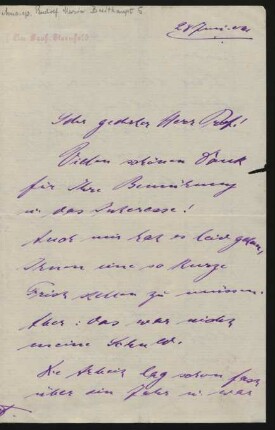 Rudolf Maria Breithaupt
Sehr geehrter Herr Prof!
Vielen schönen Dank
für Ihre Bemühung
u. das Interesse!
Auch mir hat es leid gethan,
Ihnen eine so kurze
Frist stellen zu müssen.
Aber: das war nicht
meine Schuld.
Die Arbeit lag schon fast
über ein Jahr u. war